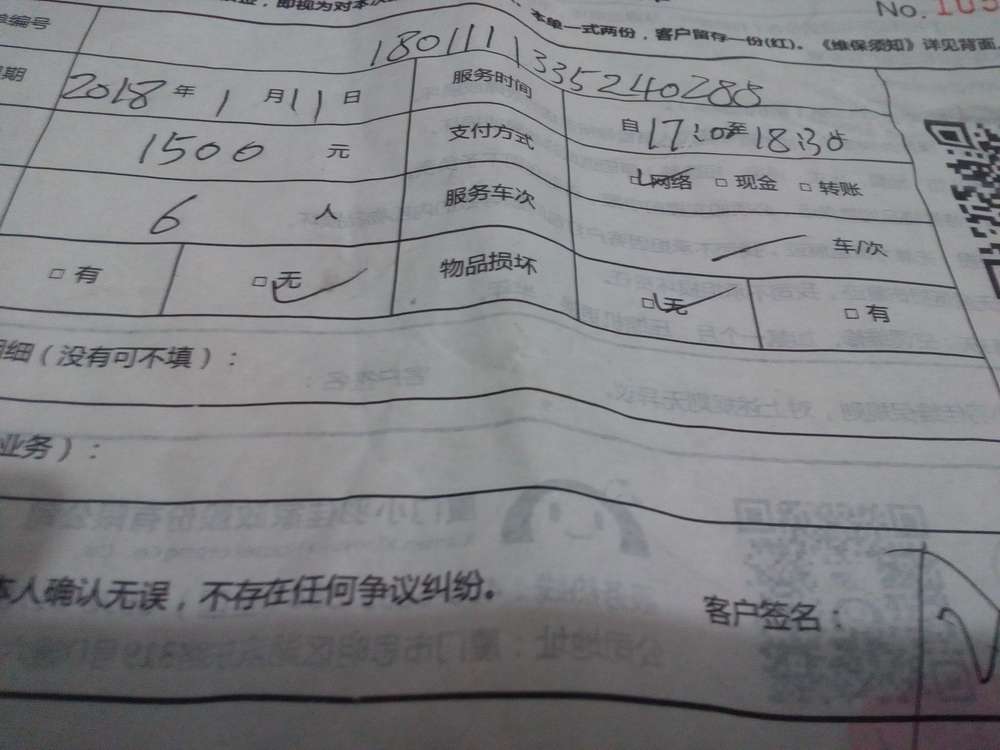 即视为对本
No.
本单一式两份，客户留存一份(红)。《维保须知》详见背面
编号 180111133524028​5
2018 年 1 月 11 日 服务时间 自 17:00至 18:30
1500 元 支付方式 □网络 □现金 □转账
6 人 服务车次 车/次
□有 □无 物品损坏 □无 □有
细（没有可不填）：
业务）：
本人确认无误，不存在任何争议纠纷。
客户签名：